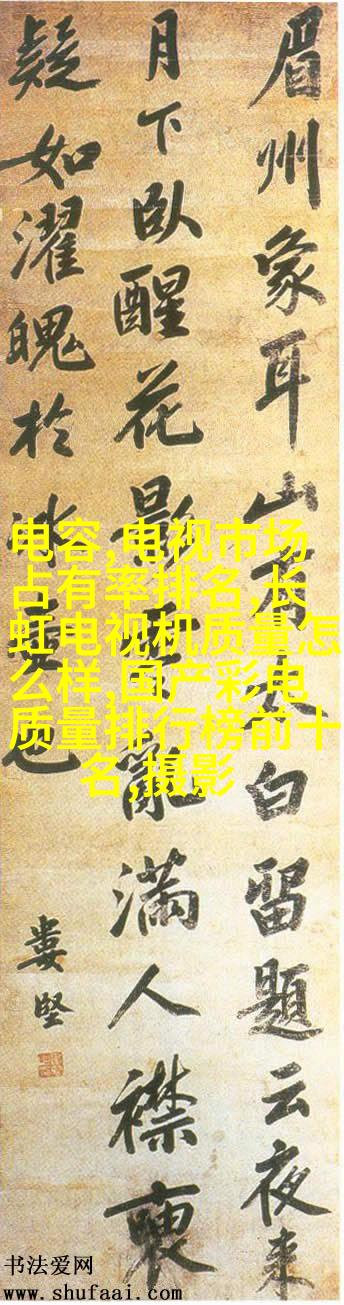 眉州象耳山有太白留題云夜来
月下臥醒花影零亂滿人襟
疑如濯魄於冰壺也
婁堅
电容,电视市场
占有率排名,长
虹电视机质量怎
么样,国产彩电
质量排行榜前十
名,摄影
书法爱网
www.shufaai.com